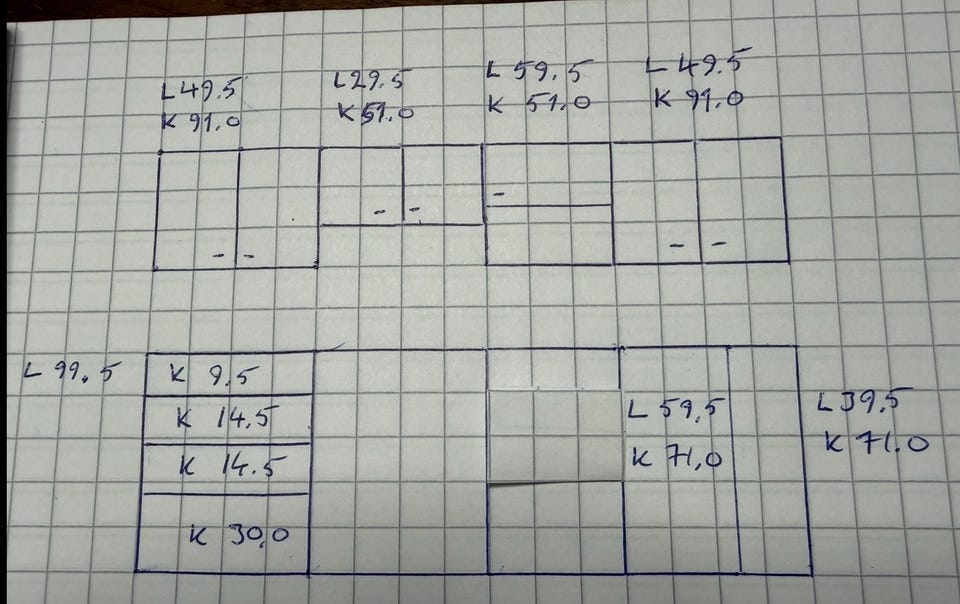 L 49.5
K 91.0
L 29.5
K 51.0
L 59.5
K 51.0
L 49.5
K 91.0
L 99.5
K 9.5
K 14.5
K 14.5
K 30,0
L 59,5
K 71,0
L 39.5
K 71.0